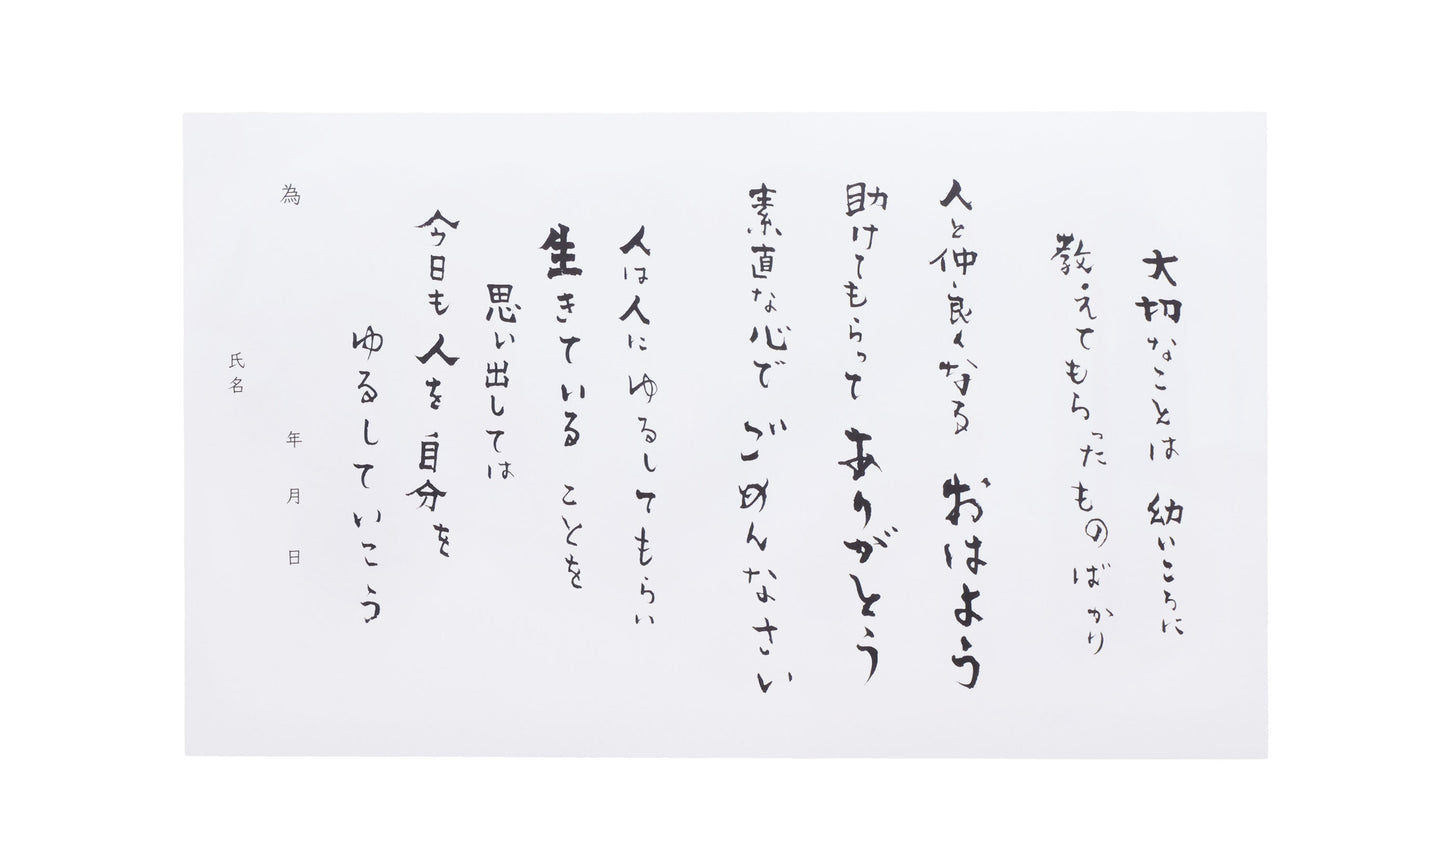 大切なことは 幼いころに
教えてもらったものばかり
人と仲良くなる おはよう
助けてもらって ありがとう
素直な心で ごめんなさい
人は人にゆるしてもらい
生きている ことを
思い出しては
今日も人を自分を
ゆるしていこう
為
年 月 日
氏名